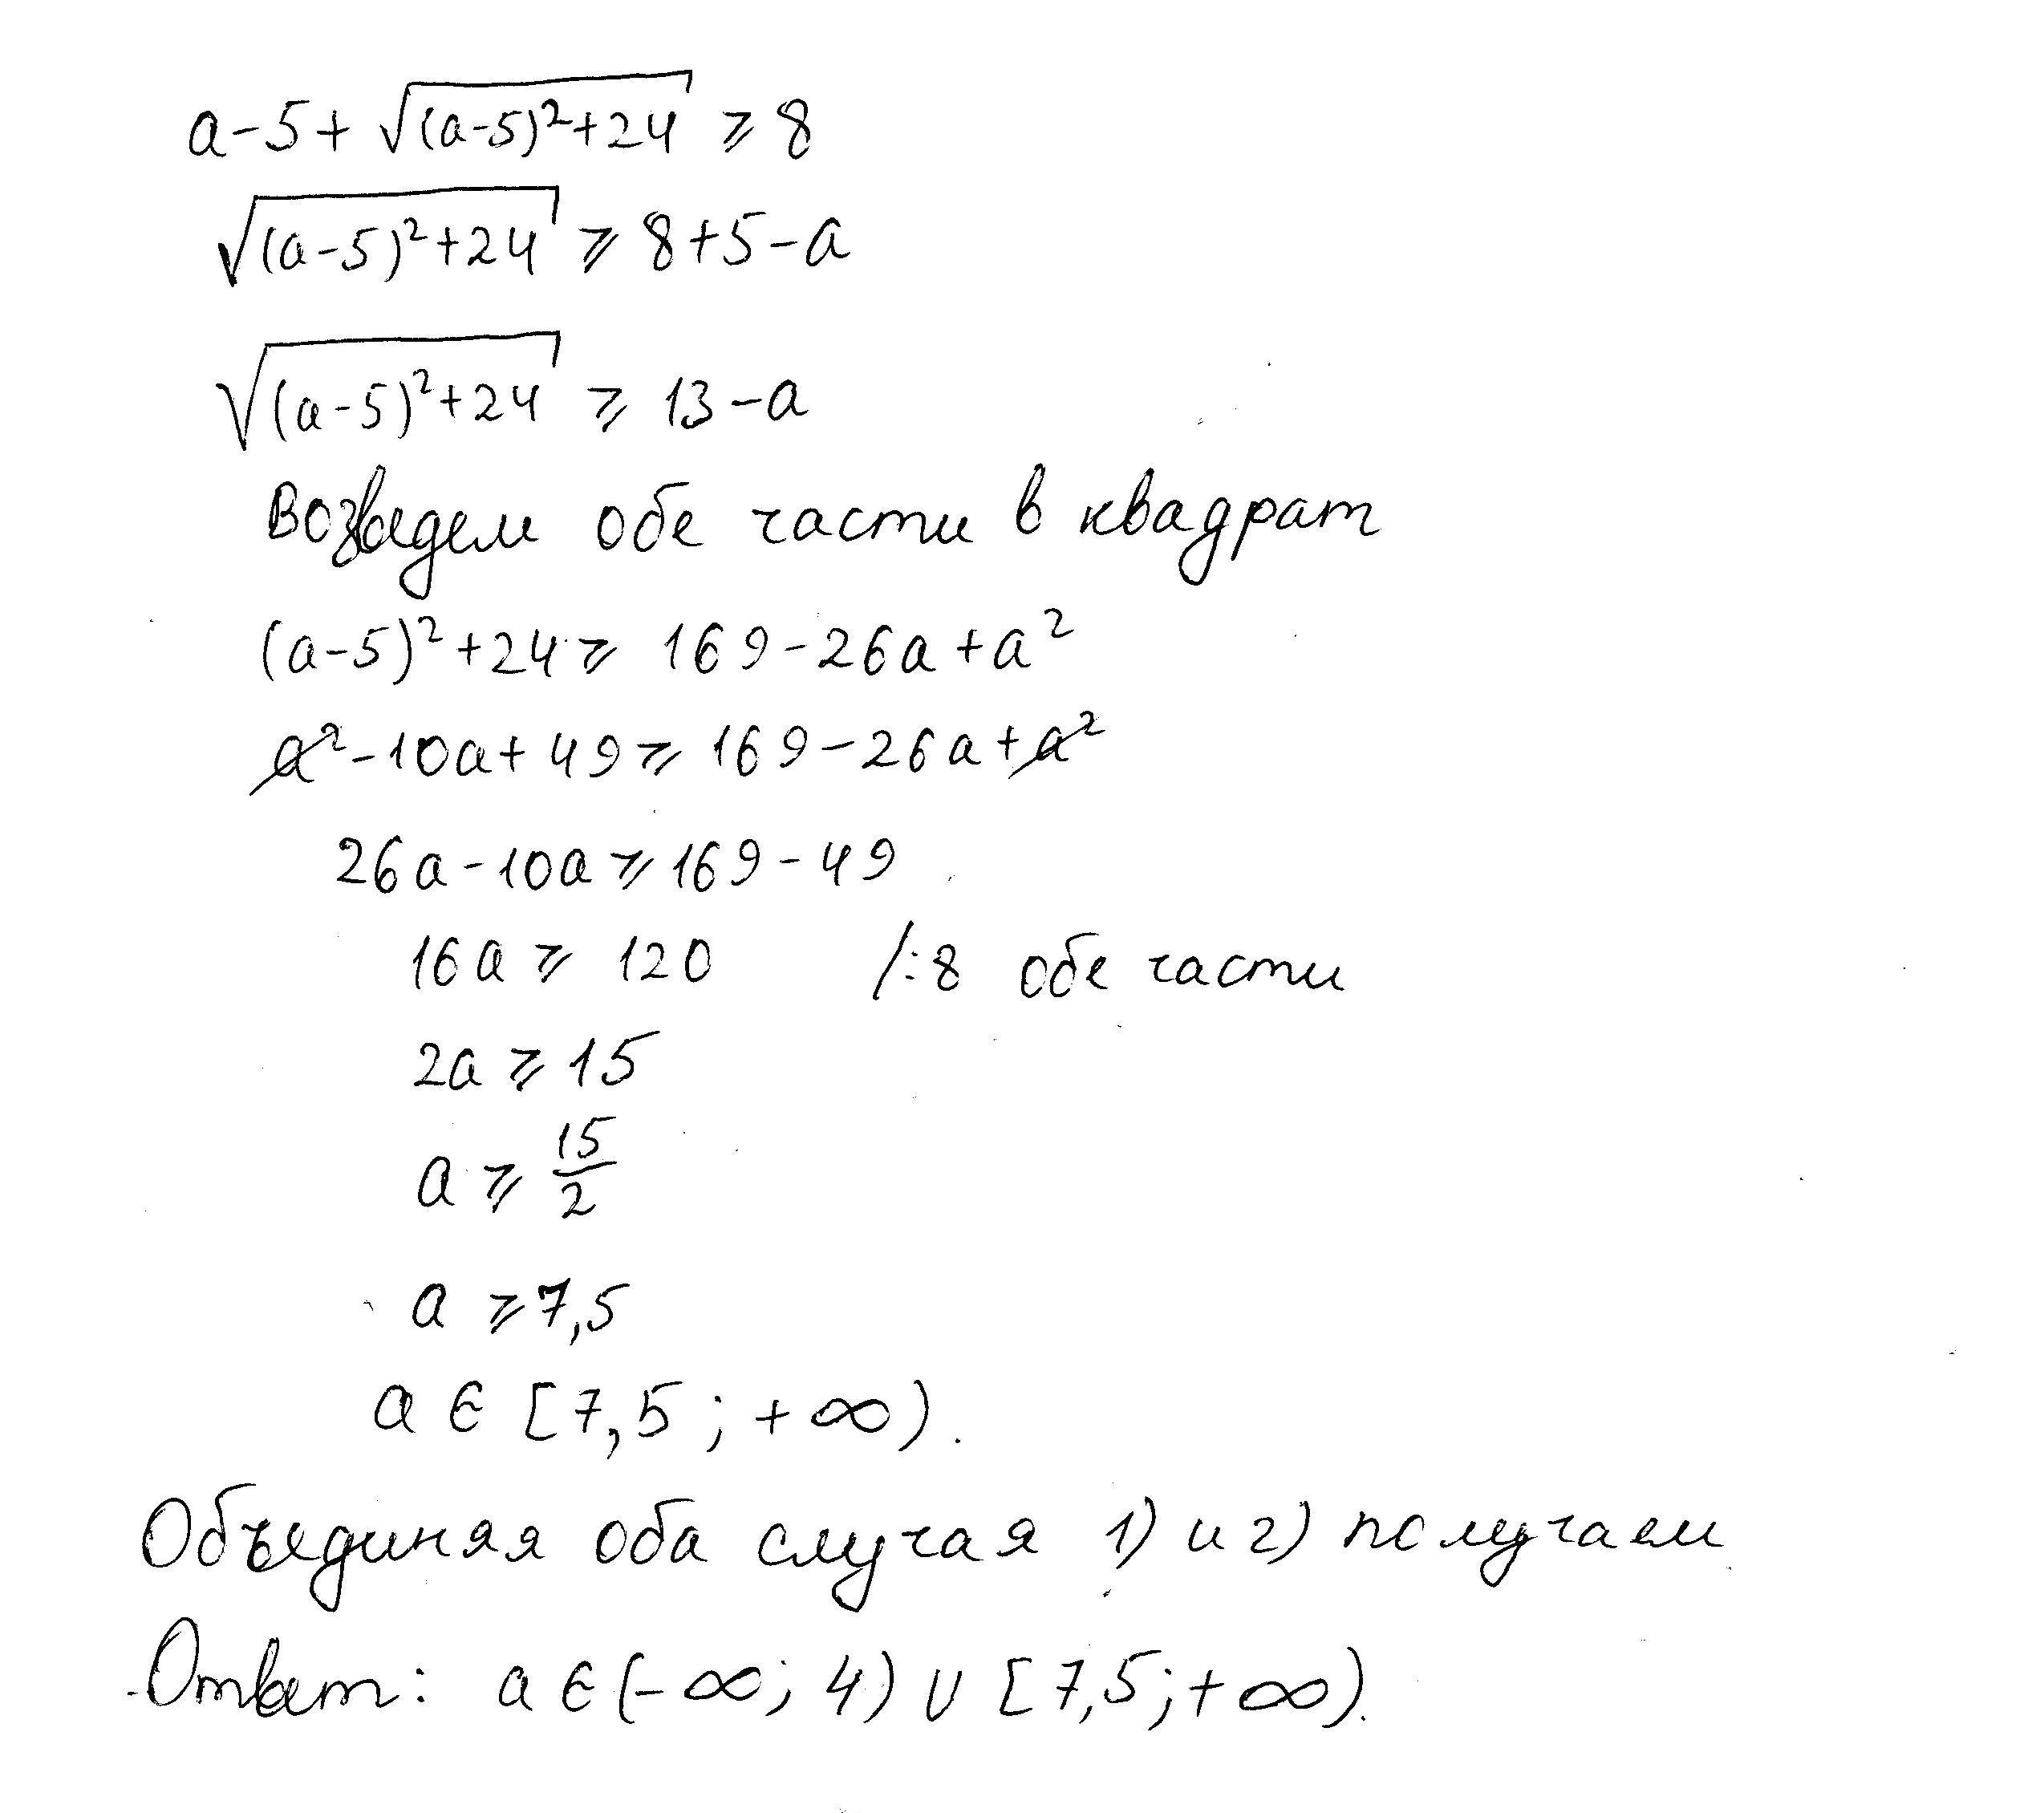 a-5+√((a-5)²+24) ⩾ 8
√((a-5)²+24) ⩾ 8+5-a
√((a-5)²+24) ⩾ 13-a
Возведем обе части в квадрат
(a-5)²+24 ⩾ 169-26a+a²
a²-10a+49 ⩾ 169-26a+a²
26a-10a ⩾ 169-49
16a ⩾ 120 /:8 обе части
2a ⩾ 15
a ⩾ 15/2
a ⩾ 7,5
a ∈ [7,5; +∞).
Объединяя оба случая 1) и 2) получаем
Ответ: a ∈ (-∞; 4) ∪ [7,5; +∞).